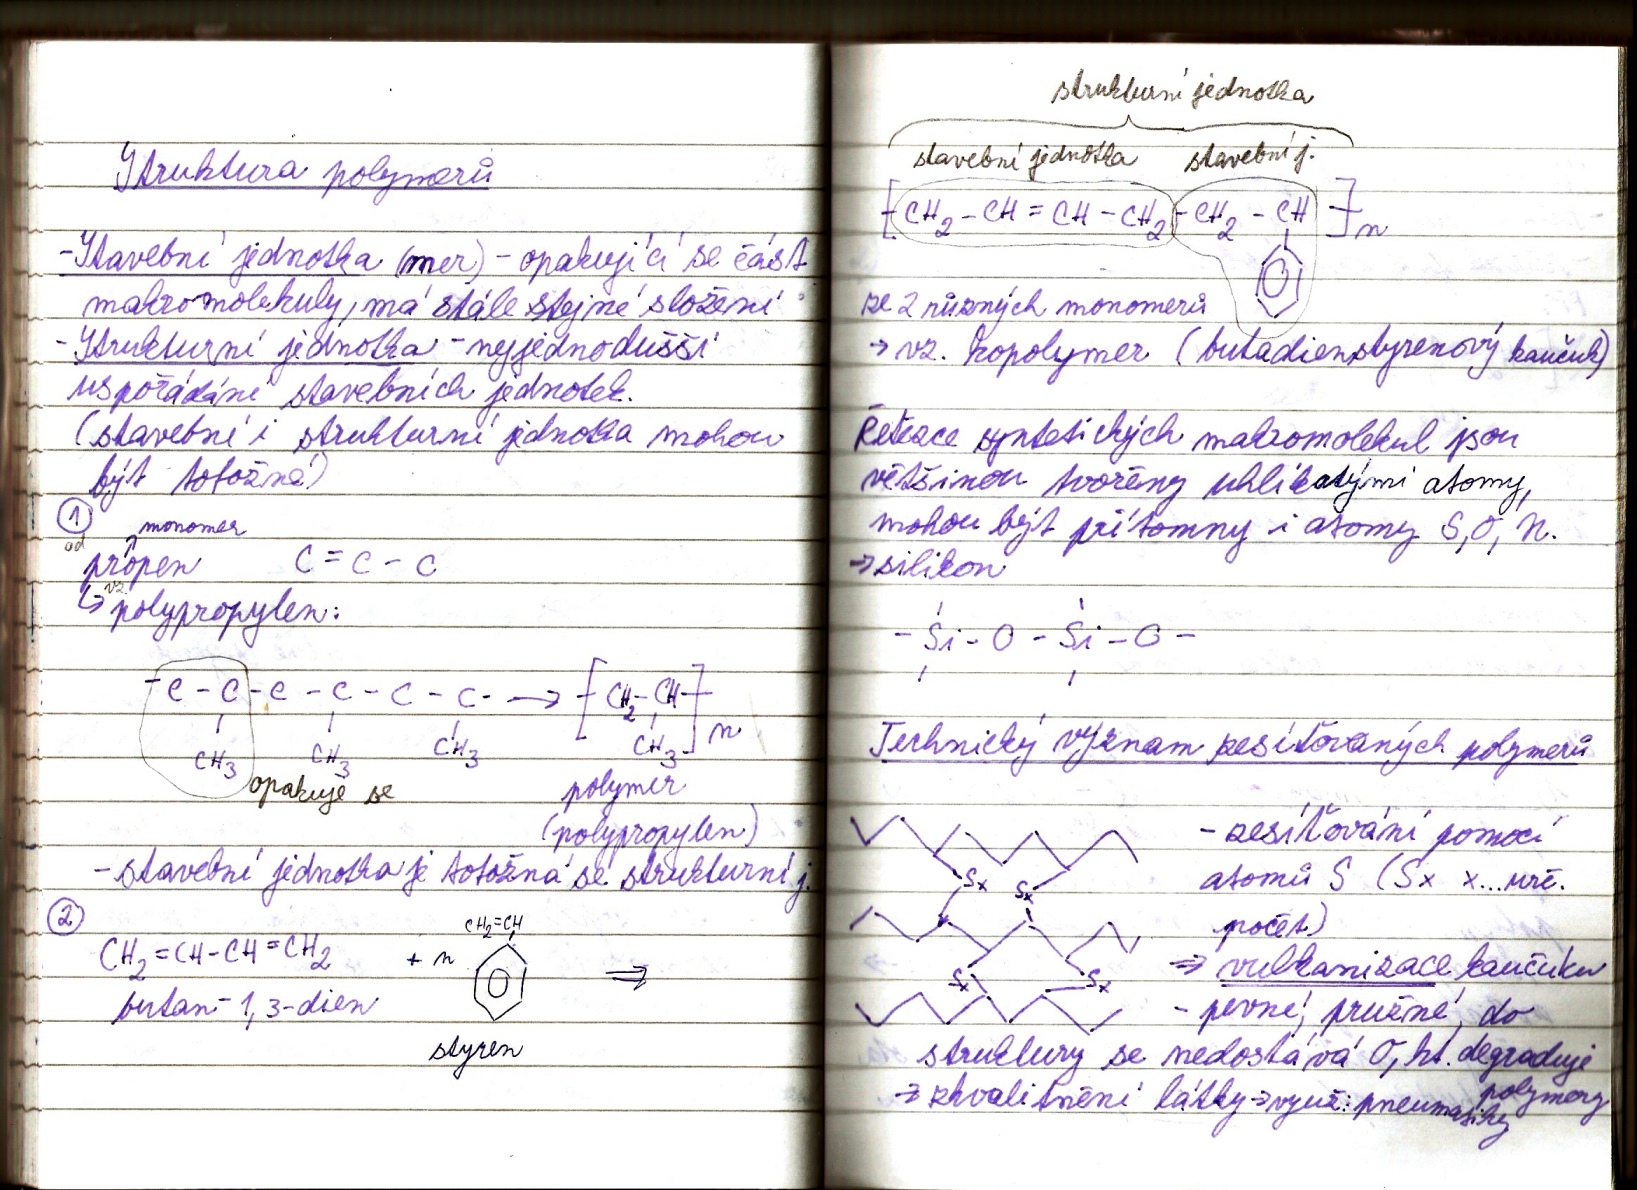 Struktura polymerů
- Stavební jednotka (mer) - opakující se část
makromolekuly, má stále stejné složení
- Strukturní jednotka - nejjednodušší
uspořádání stavebních jednotek.
(stavební i strukturní jednotka mohou
být totožné)
① monomer
od propen C = C - C
↳ vz. polypropylen:
- C - C - C - C - C - C - → [ CH2 - CH ] n
CH3 CH3 CH3 CH3
opakuje se polymer
(polypropylen)
- stavební jednotka je totožná se strukturní j.
② CH2=CH
CH2=CH-CH=CH2 + n ⇒
butan-1,3-dien
styren
strukturní jednotka
stavební jednotka stavební j.
[ CH2 - CH = CH - CH2 - CH2 - CH ] n
ze 2 různých monomerů
→ vz. kopolymer (butadienstyrenový kaučuk)
Řetězce syntetických makromolekul jsou
většinou tvořeny uhlíkatými atomy,
mohou být přítomny i atomy S, O, N.
→ silikon
- Si - O - Si - O -
Technický význam zesíťovaných polymerů
- zesíťování pomocí
atomů S (Sx x...urč.
počet)
Sx Sx
Sx Sx
⇒ vulkanizace kaučuku
- pevné, pružné, do
struktury se nedostává O, kt. degraduje
polymery
→ zkvalitnění látky → využ.: pneumatiky